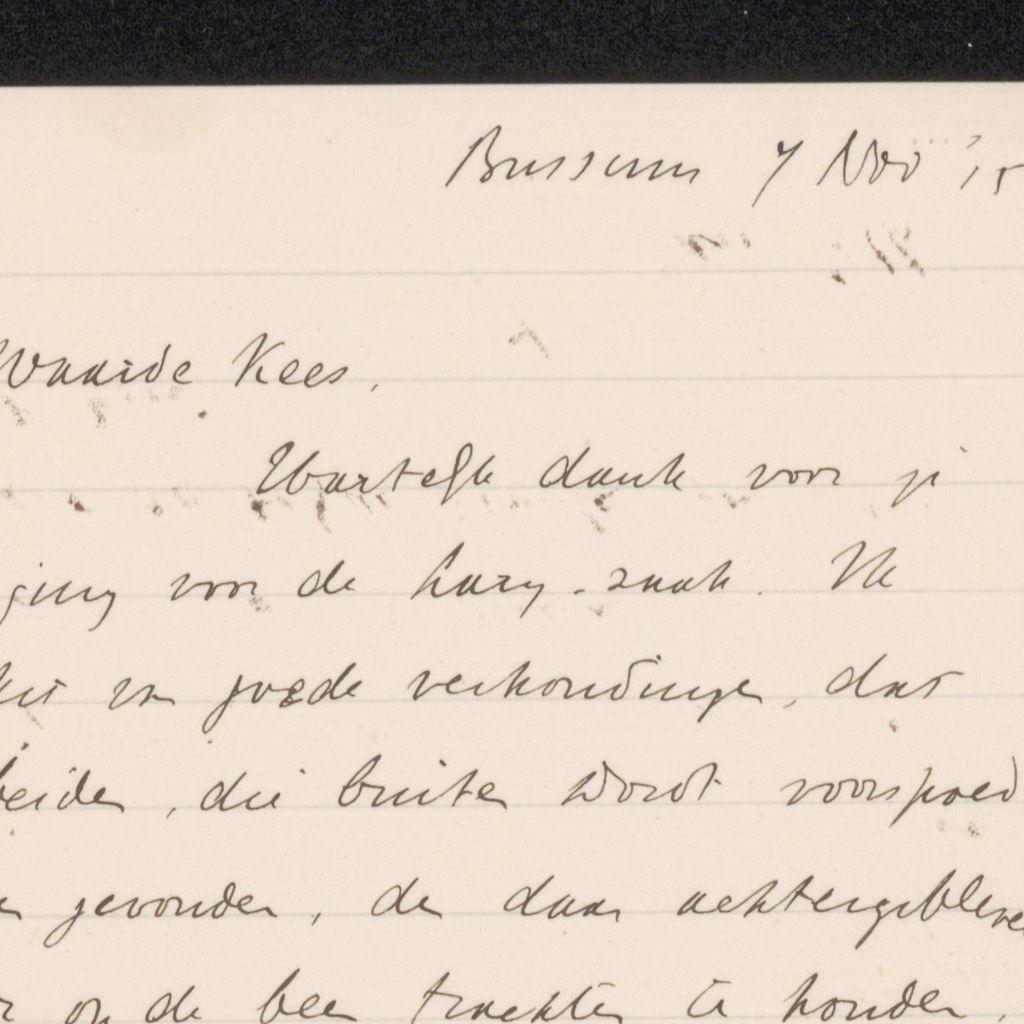 Bussum 7 Nov '15
Waarde Kees,
Hartelijk dank voor je
voor de zaak. Ik
in goede verhoudingen, dat
beiden, die buiten wordt voorspoed
gevonden, de daar achtergebleven
op de been trachten te houden.